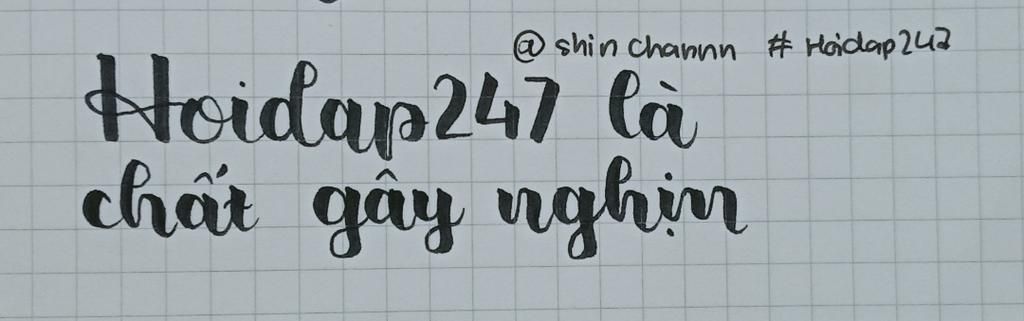 @ shin channn # Hoidap247
Hoidap247 là
chất gây nghịn